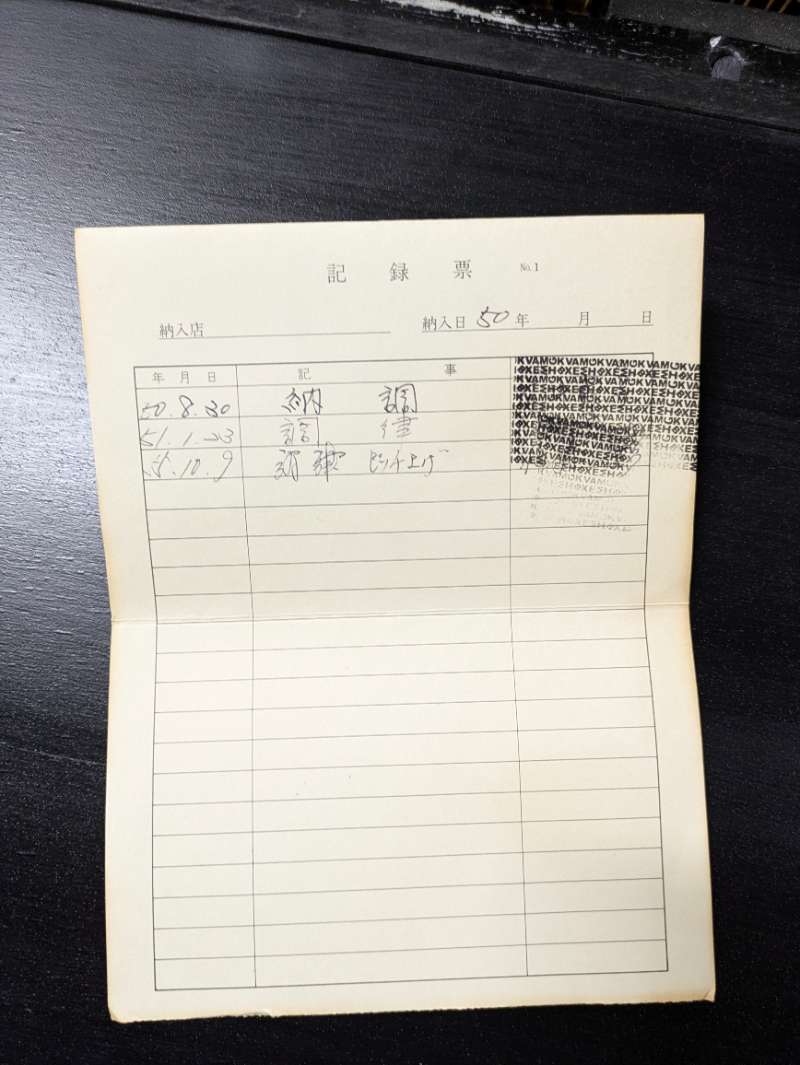 記録票 No.1
納入店 納入日 50年 月 日
年月日 記事
50.8.30 納調
51.1.23 調律
10.9 調律 ピッチ上げ